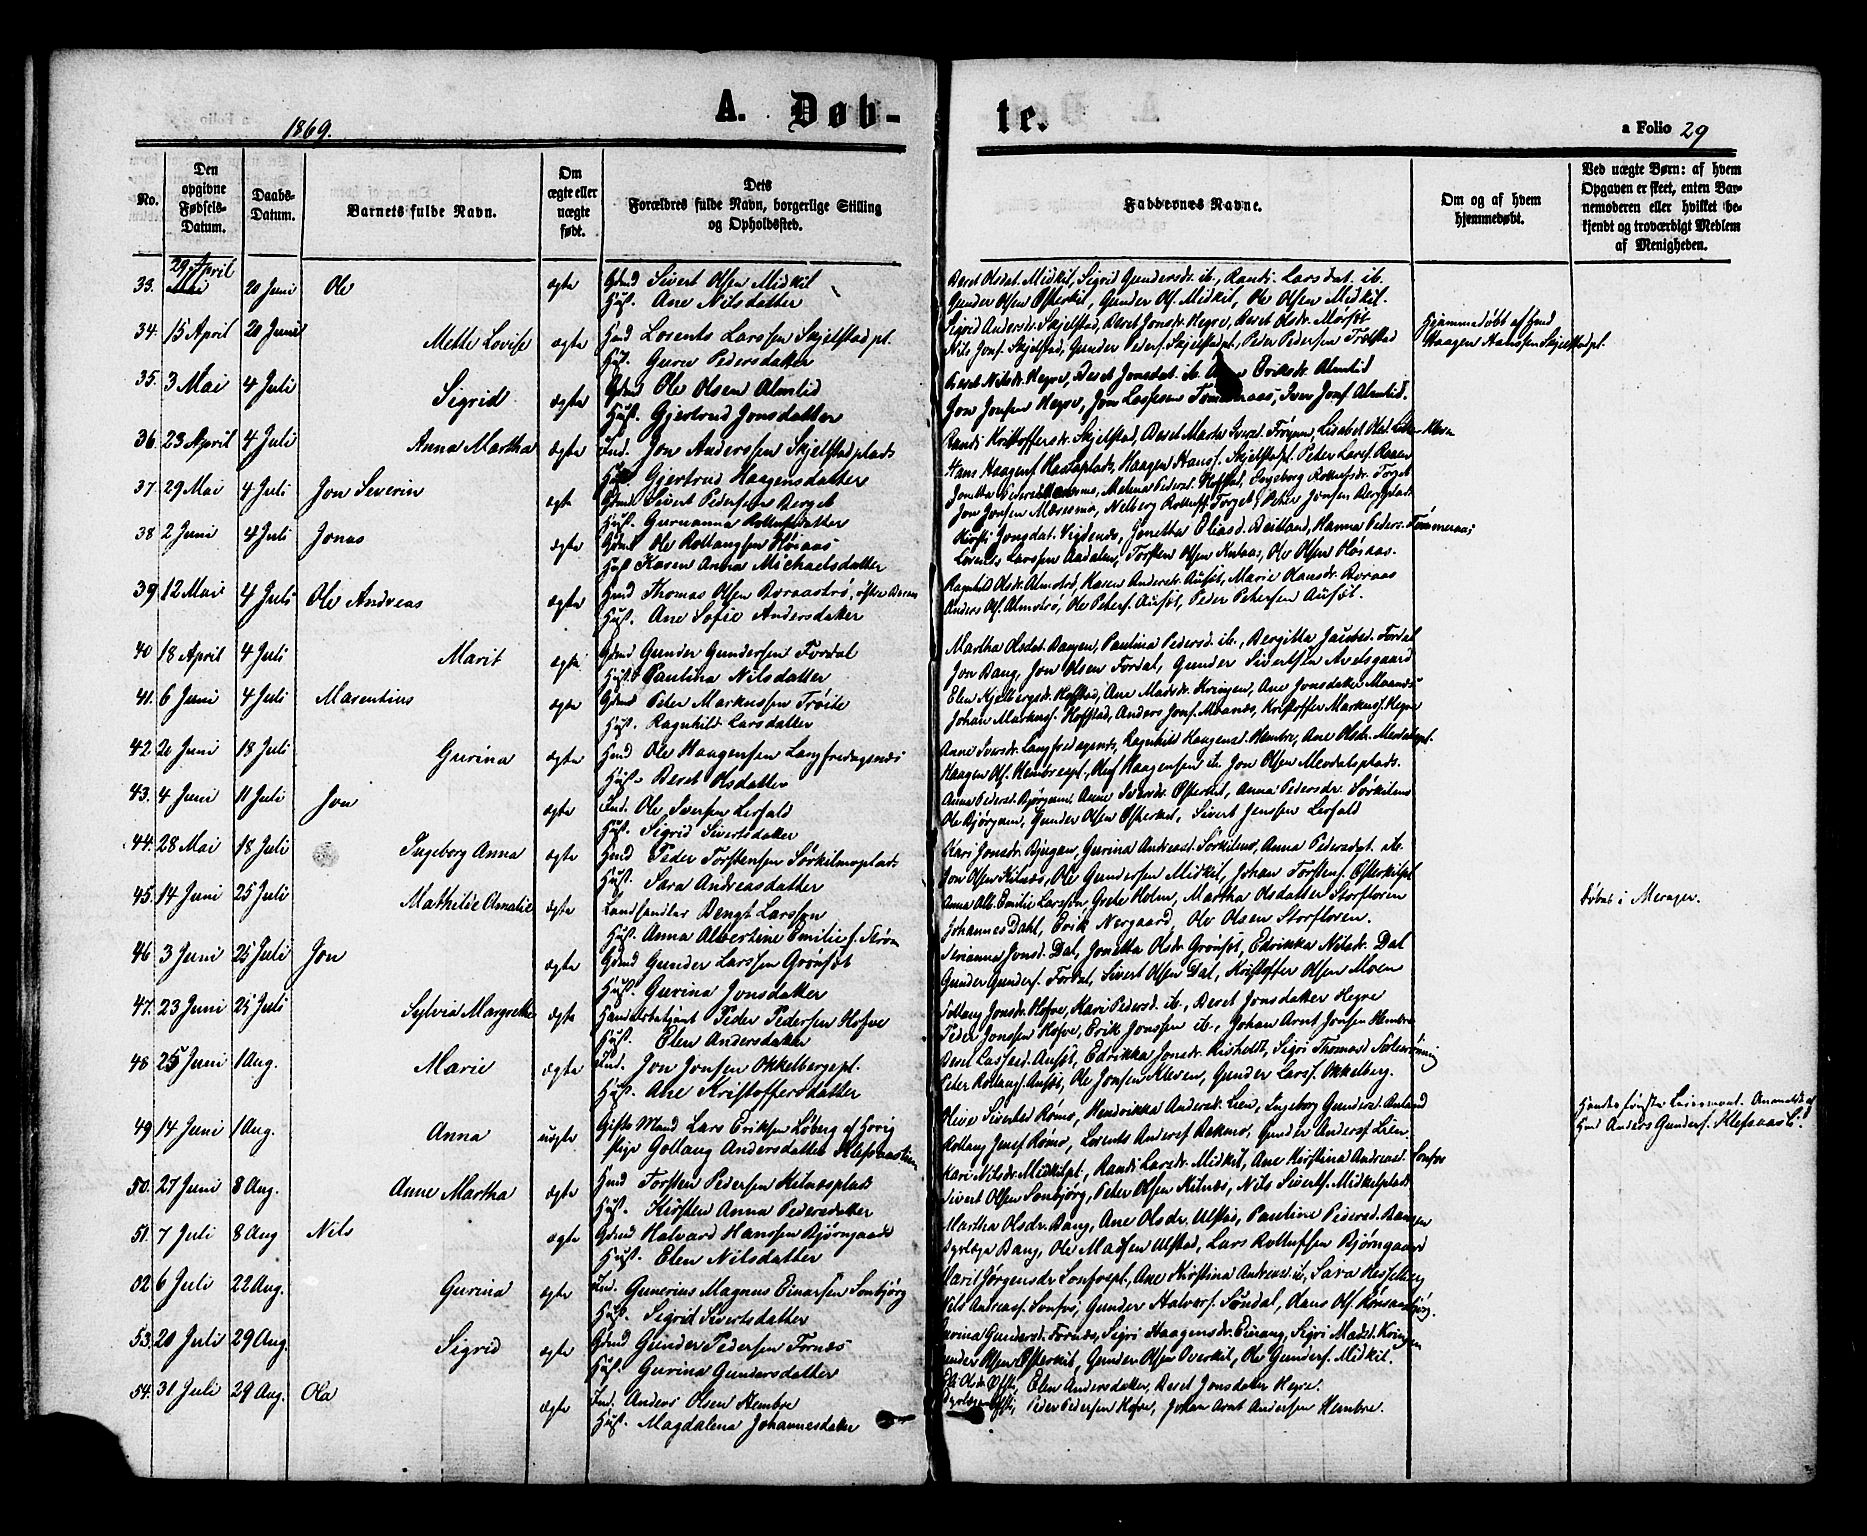 1869.
A. Døb-
te.
a Folio 29
No.
Den opgivne Fødsels-Datum.
Daabs-Datum.
Barnets fulde Navn.
Om ægte eller uægte født.
Dets Forældres fulde Navn, borgerlige Stilling og Opholdssted.
Faddernes Navne.
Om og af hvem hjemmedøbt.
Ved uægte Børn: af hvem Opgaven er skeet, enten Barnemoderen eller hvilket bekjendt og troværdigt Medlem af Menigheden.
33. 29 April 20 Juni Ole ægte Gbmd Sivert Olsen Midkil
Hust. Ane Nilsdatter
Beret Olsdat. Midkil, Sigrid Gundersdr. ib., Randi Larsdat. ib.
Gunder Olsen Østerkil, Gunder Ols. Midkil, Ole Olsen Midkil.
34. 15 April 20 Juni Mette Lovise ægte Hmd Lorents Larssen Skjelstadpl.
Hust. Guru Pedersdatter
Sigrid Andersdr. Skjelstad, Beret Jonsdr. Hegre, Beret Olsdr. Morset
Nils Jons. Skjelstad, Gunder Peders. Skjelstadpl., Peter Pedersen
Hjemmedøbt af Hmd
Haagen Hanssen Skjelstadpl.
35. 3 Mai 4 Juli Sigrid ægte Gbmd Ole Olsen Almlid
Hust. Gjertrud Jonsdatter
Beret Nilsdr. Hegre, Beret Jonsdat. ib. Eriksdr. Almlid
Jon Jonsen Hegre, Jon Lassesen Tømmeraas, Iver Jons. Almlid.
36. 23 April 4 Juli Anna Martha ægte Ind. Jon Anderssen Skjelstadplads
Hust. Gjertrud Haagensdatter
Randi Kristoffersdr. Skjelstad, Beret Marta
Hans Haagens. Haagen Hanss. Skjelstadpl. Peter Lars.
37. 29 Mai 4 Juli Jon Severin ægte Gbmd Sivert Pedersen Berget
Hust. Guruanna Rollufsdatter
Ingeborg Rollufsdr. Forget
Jon Jonsen Mærsmo, Peter Jonsen Bergplads
38 2 Juni 4 Juli Jonas ægte Gbmd Ole Rollaugsen Høiaas
Hust Karen Anna Michaelsdatter
Kirsti Jonsdat. Jonetha Eliasd. Reitland, Hanna Peders. Tømmeraas
Lorents Larssen Aadalen, Torsten Olsen Ole Olsen Høiaas.
39 12 Mai 4 Juli Ole Andreas ægte Hmd Thomas Olsen Roraastrø,
Hust. Ane Sofie Andersdatter
Ragnhild Olsdr. Almotrø, Karen Andersdr. Aufset, Marie Hansdr. Roraas
Anders Ols. Almotrø, Ole Peters. Aufset, Peder Petersen Aufset.
40 18 April 4 Juli Marit ægte Gbmd Gunder Gundersen Fordal
Hust. Paulina Nilsdatter
Martha Olsdat. Bangen, Paulina Pedersd. ib., Bergitta Fordal
Jon Bang, Jon Olsen Fordal, Gunder Sivertsen Avelsgaard
41. 6 Juni 4 Juli Marentius ægte Gbmd Peter Markussen Trøite
Hust. Ragnhild Larsdatter
Elen Kjelbergsdr. Hofstad, Ane Madsdr. Kringen, Ane Jonsdatter Moanes
Johan Markuss. Hofstad, Anders Jons. Moanes, Kristoffer Markuss. Hegre
42. 20 Juni 18 Juli Gurina ægte Hmd Ole Haagensen Langfredagsnes
Hust. Beret Olsdatter
Anne Iversdr. Langfredagsnes, Ragnhild Haagensd. Hembre, Ane Olsdr. Merdalspl.
Haagen Ols. Hembrespl., Haagensen ib. Jon Olsen Merdalsplads.
43. 4 Juni 11 Juli Jon ægte Ind. Ole Iversen Lerfald
Hust. Sigrid Sivertsdatter
Anna Pedersd. Bjørgum, Anne Iversdr. Østerkil, Anna Pedersdr. Sørkilmo
Ole Bjørgum, Gunder Olsen Østerkil, Sivert Jenssen Lerfald
44. 28 Mai 18 Juli Ingeborg Anna ægte Hmd Peder Torstensen Sørkilmoplads
Hust. Sara Andreasdatter
Kari Jonsdr. Bjugan, Gurina Andreasd. Sørkilmo, Anna Pedersdat. ib.
Jon Olsen Kilnæs, Ole Gundersen Midkil, Johan Torstens. Østerkilpl
45. 14 Juni 25 Juli Mathilde Amalie ægte Landhandler Bengt Larssen
Hust. Anna Albertine Emilie f. Strøm
Anna Alb. Emilie Larssen, Grete Holm, Martha Olsdatter Storfloren
Johannes Dahl, Erik Nergaard, Ole Olsen Storfloren.
Døbt i Merager.
46 3 Juni 25 Juli Jon ægte Gbmd Gunder Larssen Grønset
Hust. Gurina Jonsdatter
Serianna Jonsd. Dal, Jonetta Olsdr. Grønset, Edrikka Nilsdr. Dal
Gunder Gunders. Fordal, Sivert Olsen Dal, Kristoffer Olsen Moen
47. 23 Juni 25 Juli Sylvia Margrethe ægte Handelsbetjent Peder Pedersen Hofve
Hust. Elen Andersdatter
Sollaug Jonsdr. Hofve, Kari Pedersd. ib., Beret Jonsdatter Hegre
Peder Jonssen Hofve, Erik Jonssen ib., Johan Arnt Jonsen Hembre
48 25 Juni 1 Aug. Marie ægte Ind. Jon Jonsen Okkelbergspl.
Hust. Ane Kristoffersdatter
Beret Lassesd. Aufset, Edrikka Jonsdr. Sigri Thomasd.
Peter Rollaugs. Aufset, Ole Jonsen Kleven, Gunder Larss. Okkelberg.
49 14 Juni 1 Aug. Anna uægte Gifte Mand Lars Eriksen Løberg af
Pige Gollaug Andersdatter
Olive Sivertsd. Rømo, Hendrikka Andersd. Lien, Ingeborg Gundersd.
Rollaug Jons. Rømo, Lorents Anders. Gunder Anders. Lien
Hendes første Leiermaal. Anmeldt af
Hmd Anders Gunders. Klefsaas
50. 27 Juni 8 Aug. Anne Martha ægte Hmd Torsten Pedersen Kilnæsplads
Hust. Kirsten Anna Pedersdatter
Kari Nilsdr. Midkilpl., Randi Larsdr. Midkil, Ane Kirstina Andreasd. Sonfve
Sivert Olsen Sonbjørg, Peter Olsen Kilnæs, Nils Siverts. Midkilplads
51. 7 Juli 8 Aug Nils ægte Gbmd Halvard Hanssen Bjørngaard
Hust. Elen Nilsdatter
Martha Olsdr. Bang, Ane Olsdr. Ulstad, Pauline Pedersd. Bangen
Dyrlæge Bang, Ole Madsen Ulstad, Lars Rollufsen Bjørngaard
52 6 Juli 22 Aug. Gurina ægte Ind. Gunerius Magnus Einarsen Sonbjørg
Hust. Sigrid Sivertsdatter
Marit Jørgensdr. Sonfvepl., Ane Kirstina Andreasd. ib., Sara Hesselberg
Nils Andreass. Sonfve, Gunder Halvors. Sondal, Hans Ols.
53. 20 Juli 29 Aug. Sigrid ægte Gbmd Gunder Pedersen Fornæs
Hust. Gurina Gundersdatter
Gurina Gundersd. Fornæs, Sigri Haagensdr. Einang, Sigri Madsd. Kringen
Gunder Olsen Østerkil, Gunder Olsen Overkil, Ole Gunders. Midkil.
54. 31 Juli 29 Aug. Ola ægte Ind. Anders Olsen Hembre
Hust. Magdalena Johannesdatter
Øfsti, Elen Andersdatter, Beret Jonsdatter Hegre.
Øfsti, Peder Pedersen Hofve, Johan Arnt Andersen Hembre.